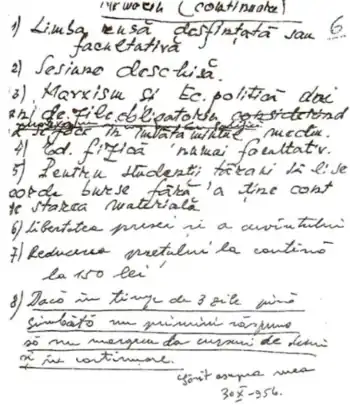 (continuare) 6
1) Limba rusă desființată sau
facultativă
2) Sesiune deschisă.
3) Marxism și Ec. politică doi
ani de zile obligatoriu considerînd
în învățămîntul mediu.
4) Ed. fizică numai facultativ.
5) Pentru studenții țărani să li se
acorde burse fără a ține cont
de starea materială
6) Libertatea presei și a cuvîntului
7) Reducerea prețului la cantină
la 150 lei
8) Dacă în timp de 3 zile pînă
sîmbătă nu primim răspuns
să nu mergem la cursuri de luni
și în continuare.
găsit asupra mea
30 X-956.